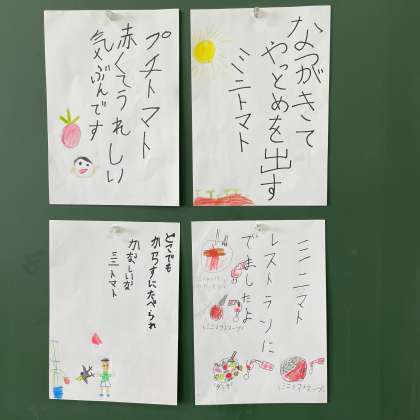 プチトマト
赤くてうれしい
気ぶんです
なつがきて
やっとめを出す
ミニトマト
どこでも
かならずにたべられ
かなしいな
ミニトマト
ミニトマト
レストランに
でましたよ
ミニトマトスープ
サラダ
ミニトマトスープ